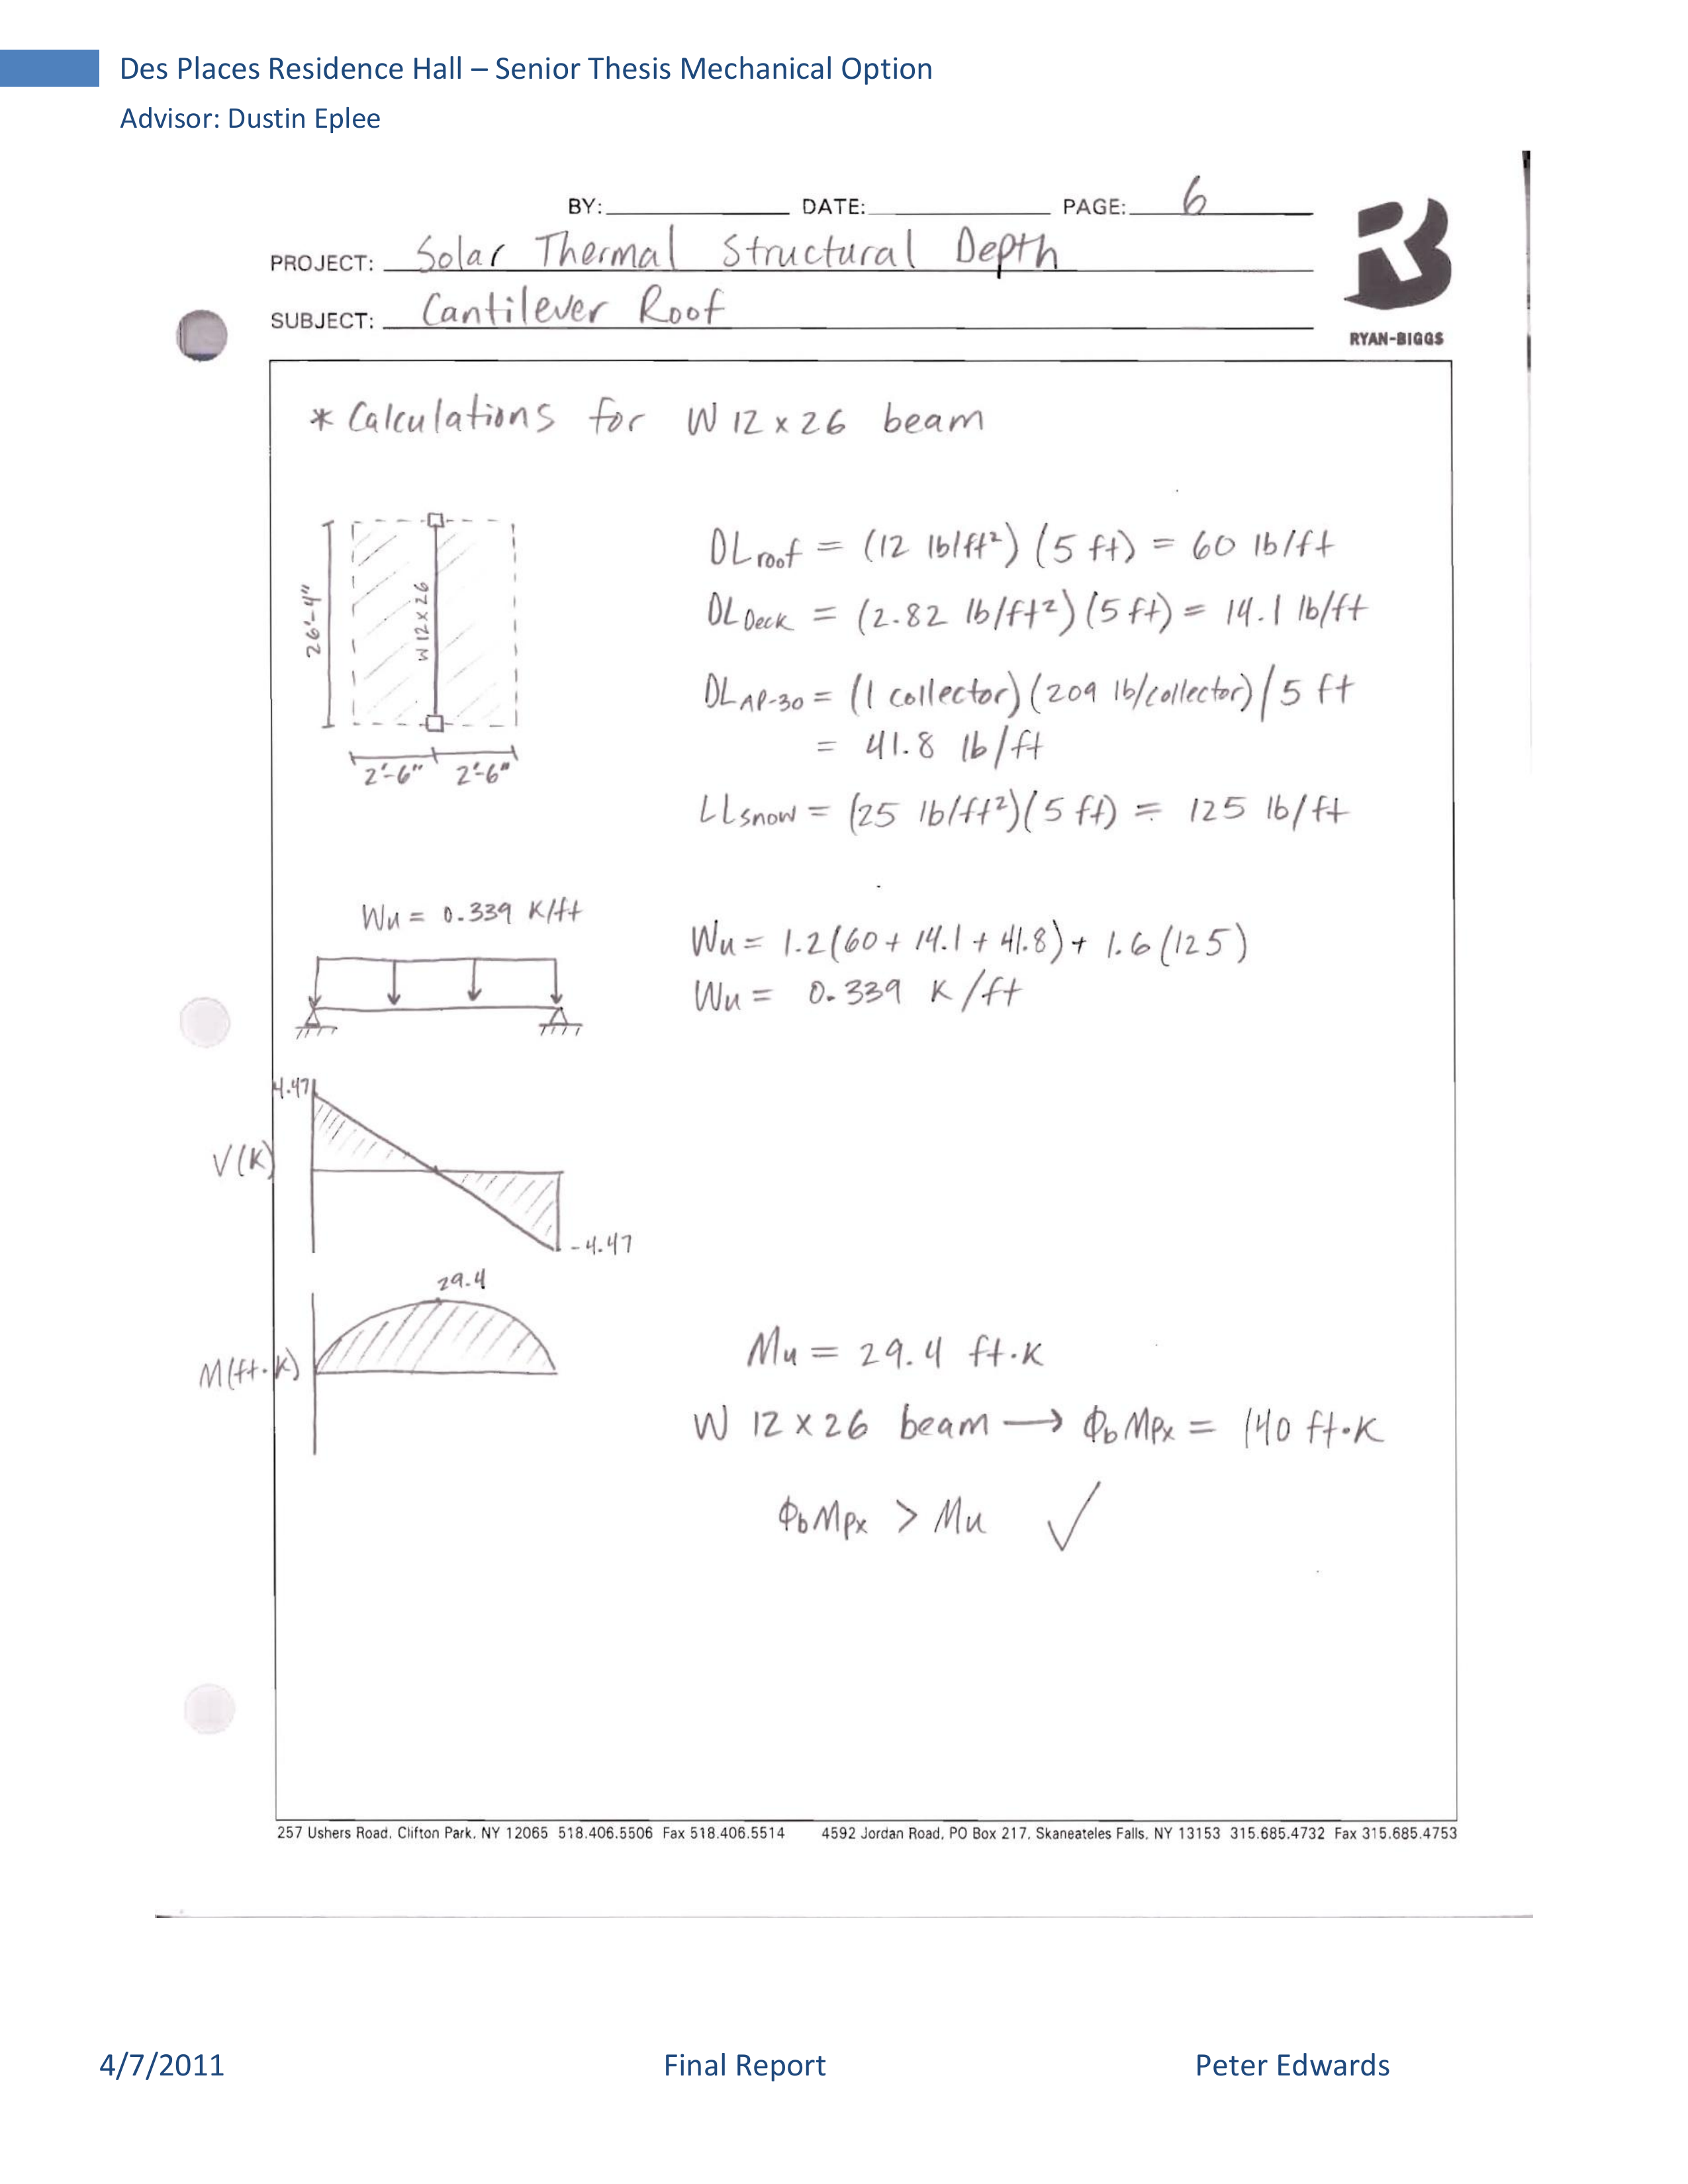 Des Places Residence Hall – Senior Thesis Mechanical Option
Advisor: Dustin Eplee
BY: DATE: PAGE: 6
PROJECT: Solar Thermal Structural Depth
SUBJECT: Cantilever Roof
RYAN-BIGGS
* Calculations for W 12 x 26 beam
26'-4"
W 12 x 26
2'-6" 2'-6"
DL roof = (12 lb/ft²) (5 ft) = 60 lb/ft
DL Deck = (2.82 lb/ft²) (5 ft) = 14.1 lb/ft
DL AP-30 = (1 collector) (209 lb/collector) / 5 ft
= 41.8 lb/ft
LL snow = (25 lb/ft²) (5 ft) = 125 lb/ft
Wu = 0.339 K/ft
Wu = 1.2 (60 + 14.1 + 41.8) + 1.6 (125)
Wu = 0.339 K/ft
4.47
V(K)
-4.47
29.4
M(ft·K)
Mu = 29.4 ft·K
W 12 x 26 beam → ϕb Mpx = 140 ft·K
ϕb Mpx > Mu ✓
257 Ushers Road, Clifton Park, NY 12065 518.406.5506 Fax 518.406.5514 4592 Jordan Road, PO Box 217, Skaneateles Falls, NY 13153 315.685.4732 Fax 315.685.4753
4/7/2011 Final Report Peter Edwards